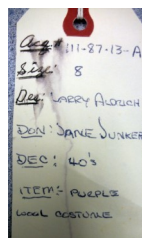 Acq# 111-87-13-A
Size: 8
Des: LARRY ALDRICH
DON: JANE JUNKER
DEC: 40's
ITEM:- PURPLE
WOOL COSTUME